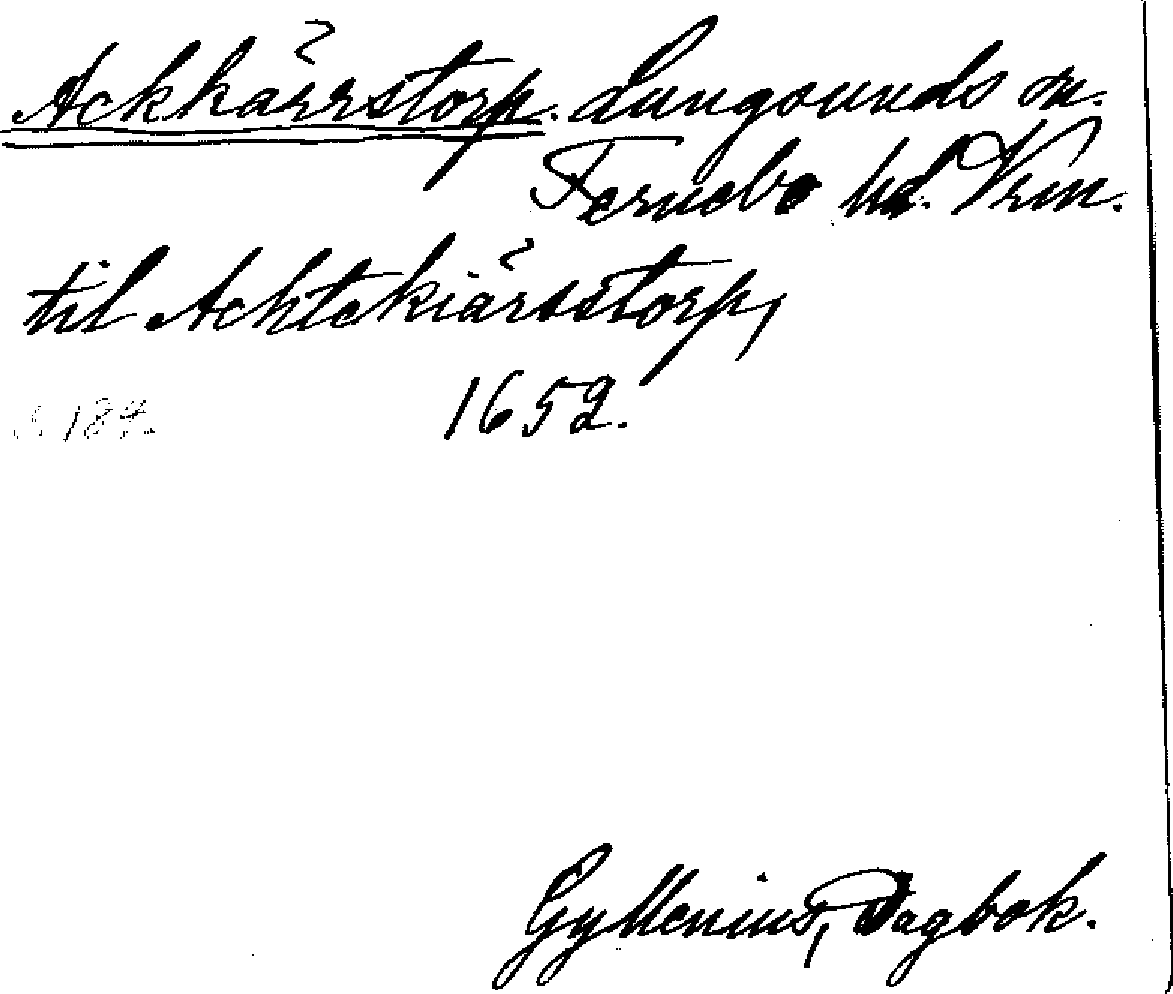 Ackkärrstorp. Lungsunds sn.
Fernebo hd. Vrm.
til Achtekiärsstorp,
1652.
s. 184.
Gyllenius, Dagbok.